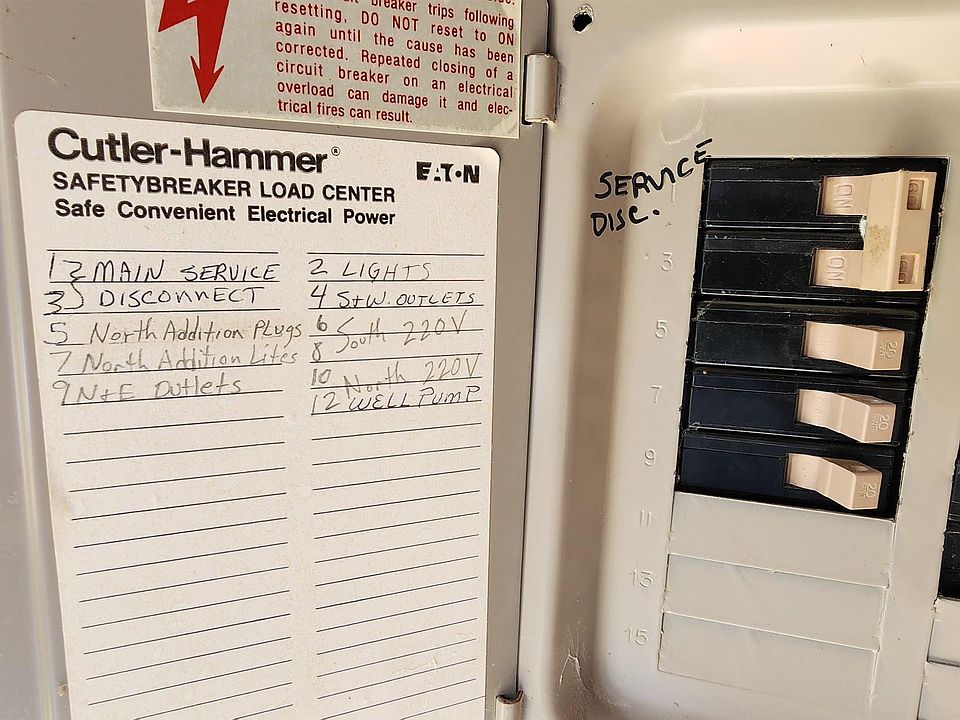 breaker trips following
resetting, DO NOT reset to ON
again until the cause has been
corrected. Repeated closing of a
circuit breaker on an electrical
overload can damage it and elec-
trical fires can result.
Cutler-Hammer®
EATON
SAFETYBREAKER LOAD CENTER
Safe Convenient Electrical Power
1 MAIN SERVICE
3 DISCONNECT
5 North Addition Plugs
7 North Addition Lites
9 N+E Outlets
2 LIGHTS
4 S+W. OUTLETS
6 South 220V
8
10 North 220V
12 WELL PUMP
SERVICE
DISC.
1
3
5
7
9
11
13
15
ON
ON
20
20
20